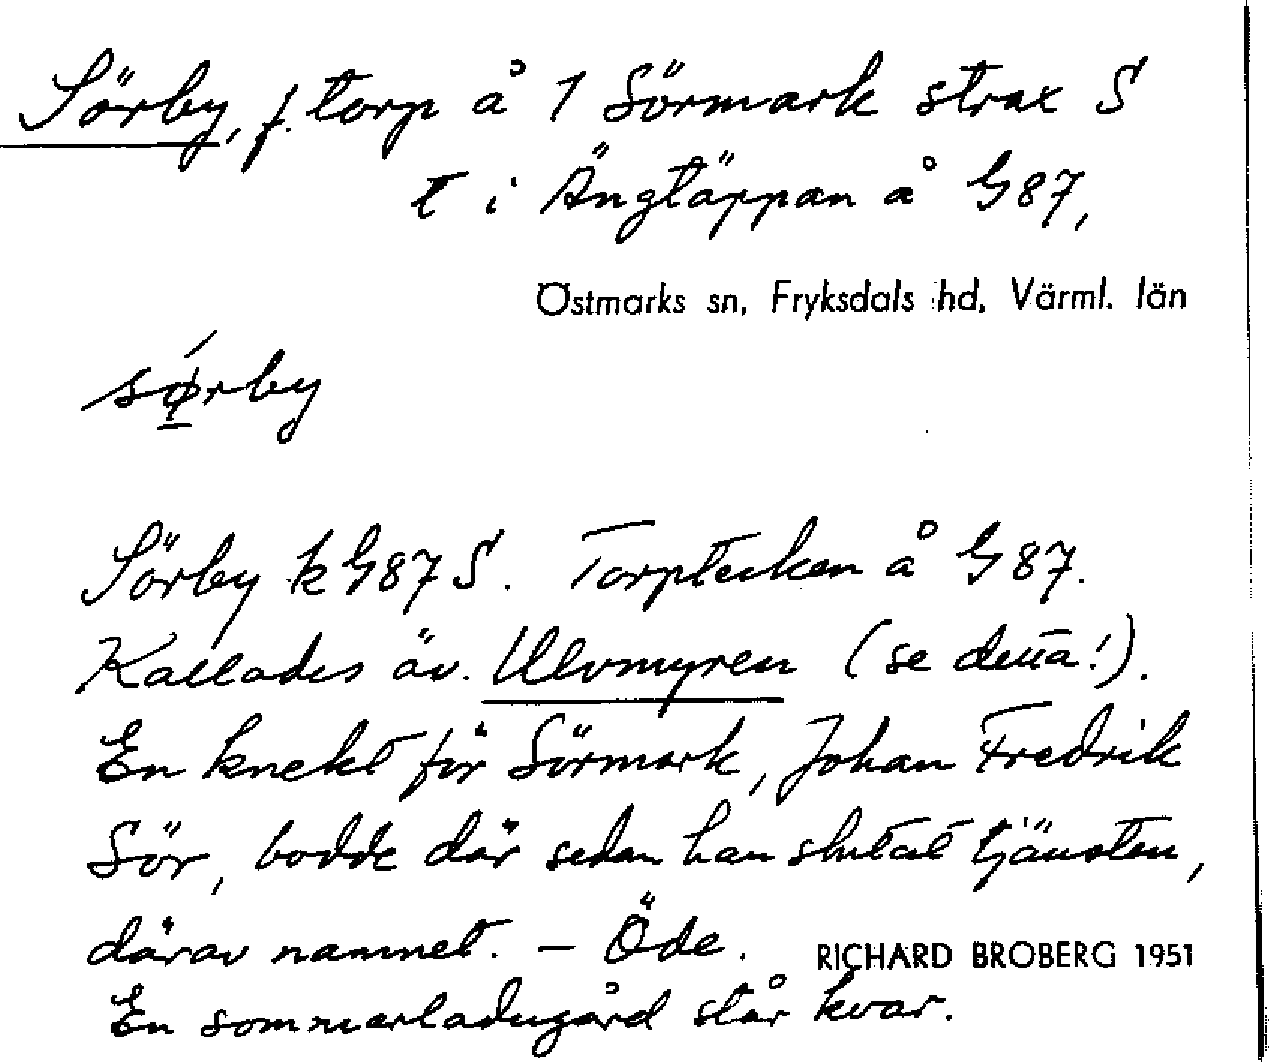 Sörby, f. torp å 1 Sörmark strax S
t i Ängtäppan å G87,
Östmarks sn, Fryksdals hd, Värml. län
sørby
Sörby k G87 S. Torptecken å G87.
Kallades äv. Ulvmyren (se detta!).
En knekt för Sörmark, Johan Fredrik
Sör, bodde där sedan han slutat tjänsten,
därav namnet. – Öde.
RICHARD BROBERG 1951
En sommarladugård står kvar.